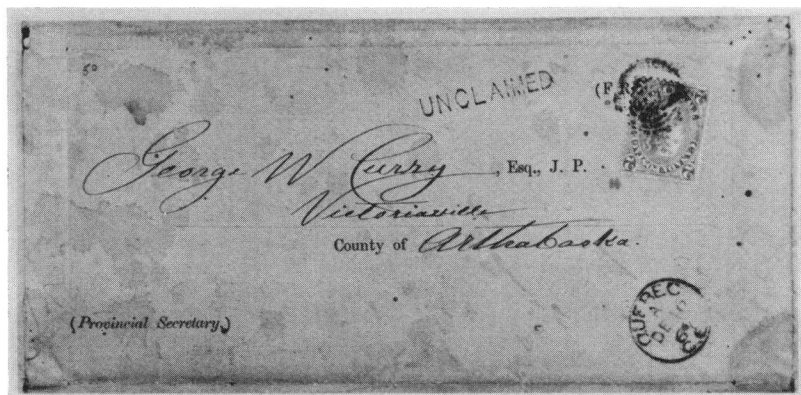 50
UNCLAIMED
(F.R
George W Curry, Esq., J. P.
Victoriaville
County of Arthabaska.
(Provincial Secretary,)
QUEBEC
A
DE 10
C.E